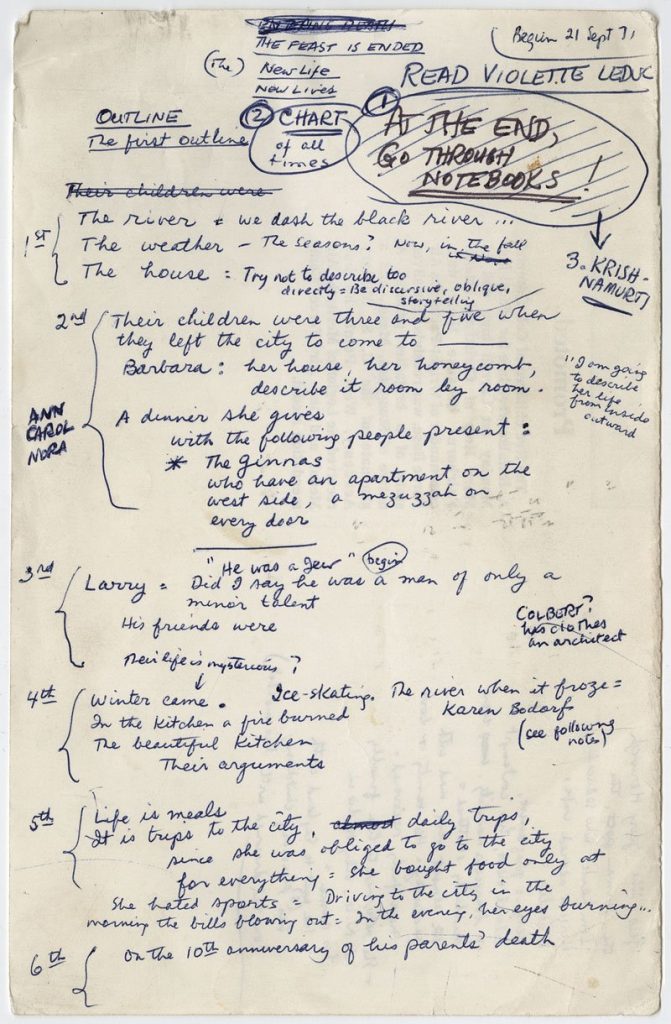 THE FEAST IS ENDED
Begin 21 Sept 71
(The) New Life
New Lives
READ VIOLETTE LEDUC
OUTLINE
The first outline
② CHART
of all
times
①
AT THE END,
GO THROUGH
NOTEBOOKS !
3. KRISH-
NAMURTI
Their children were
1st
The river + we dash the black river ...
The weather - The seasons? Now, in the fall
The house = Try not to describe too
directly = Be discursive, oblique,
storytelling
2nd
Their children were three and five when
they left the city to come to
Barbara : her house, her honeycomb,
describe it room by room.
"I am going
to describe
her life
from inside
outward
ANN
CAROL
NORA
A dinner she gives
with the following people present :
* The Ginnas
who have an apartment on the
west side, a mezuzzah on
every door
3rd
"He was a Jew" begin
Larry = Did I say he was a man of only a
minor talent
His friends were
COLBERT?
has clothes
an architect
Their life is mysterious ?
4th
Winter came. Ice-skating. The river when it froze =
Karen Bodorf
(see following
notes)
In the kitchen a fire burned
The beautiful kitchen
Their arguments
5th
Life is meals
It is trips to the city, almost daily trips,
since she was obliged to go to the city
for everything = she bought food only at
She hated sports = Driving to the city in the
morning the bills blowing out = In the evening, her eyes burning...
6th
On the 10th anniversary of his parents' death